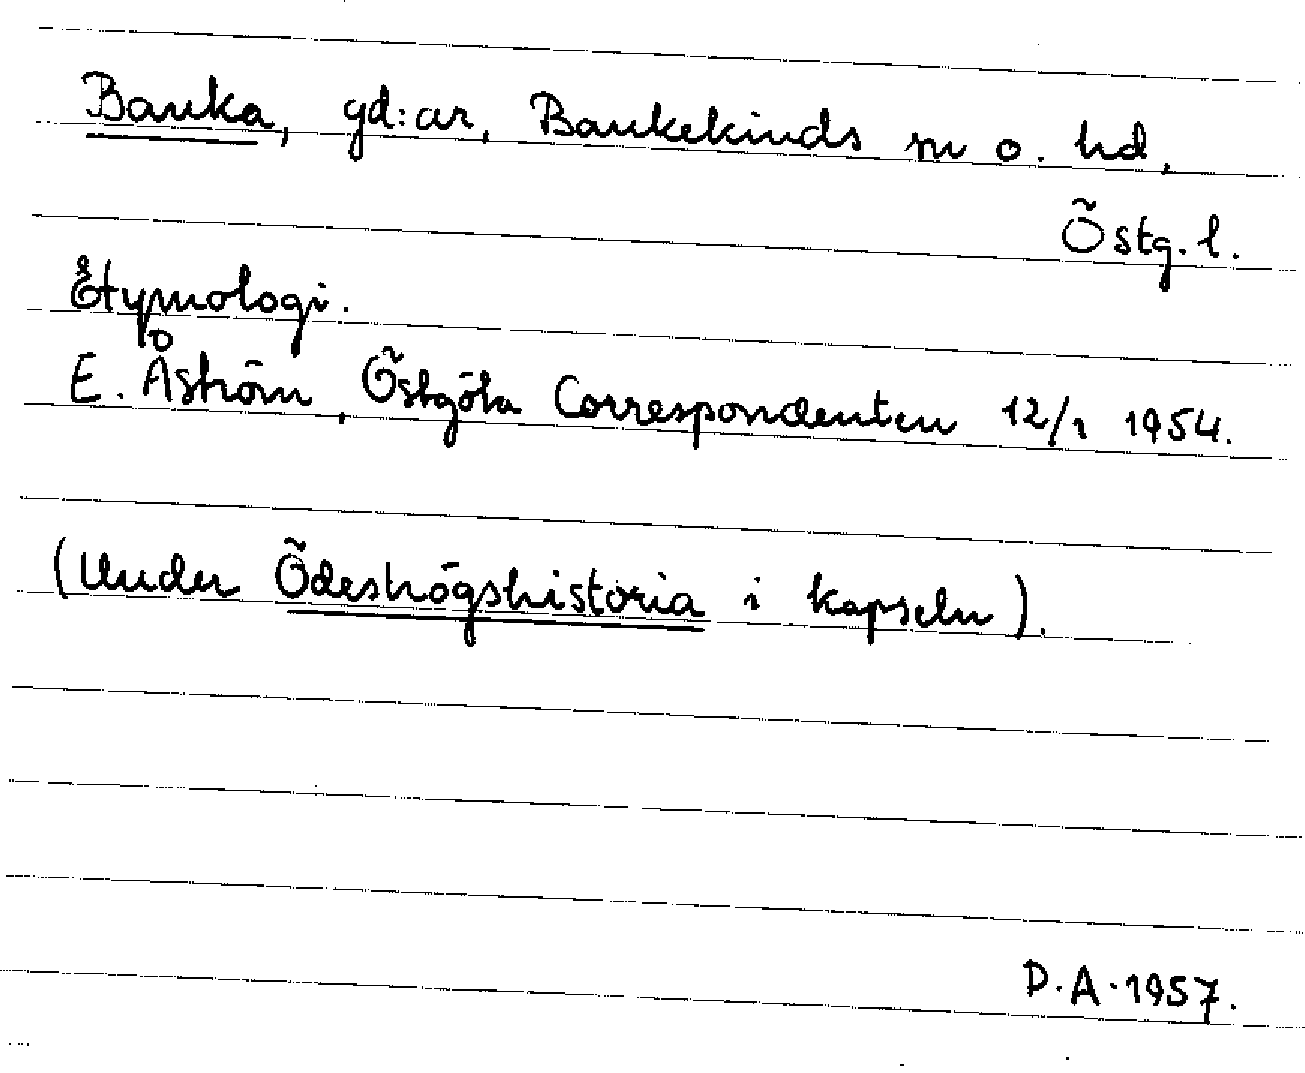 Banka, gd:ar, Bankekinds sn o. hd,
Östg. l.
Etymologi.
E. Åström, Östgöta Correspondenten 12/1 1954.
(Under Ödeshögshistoria i kapseln).
D.A. 1957.